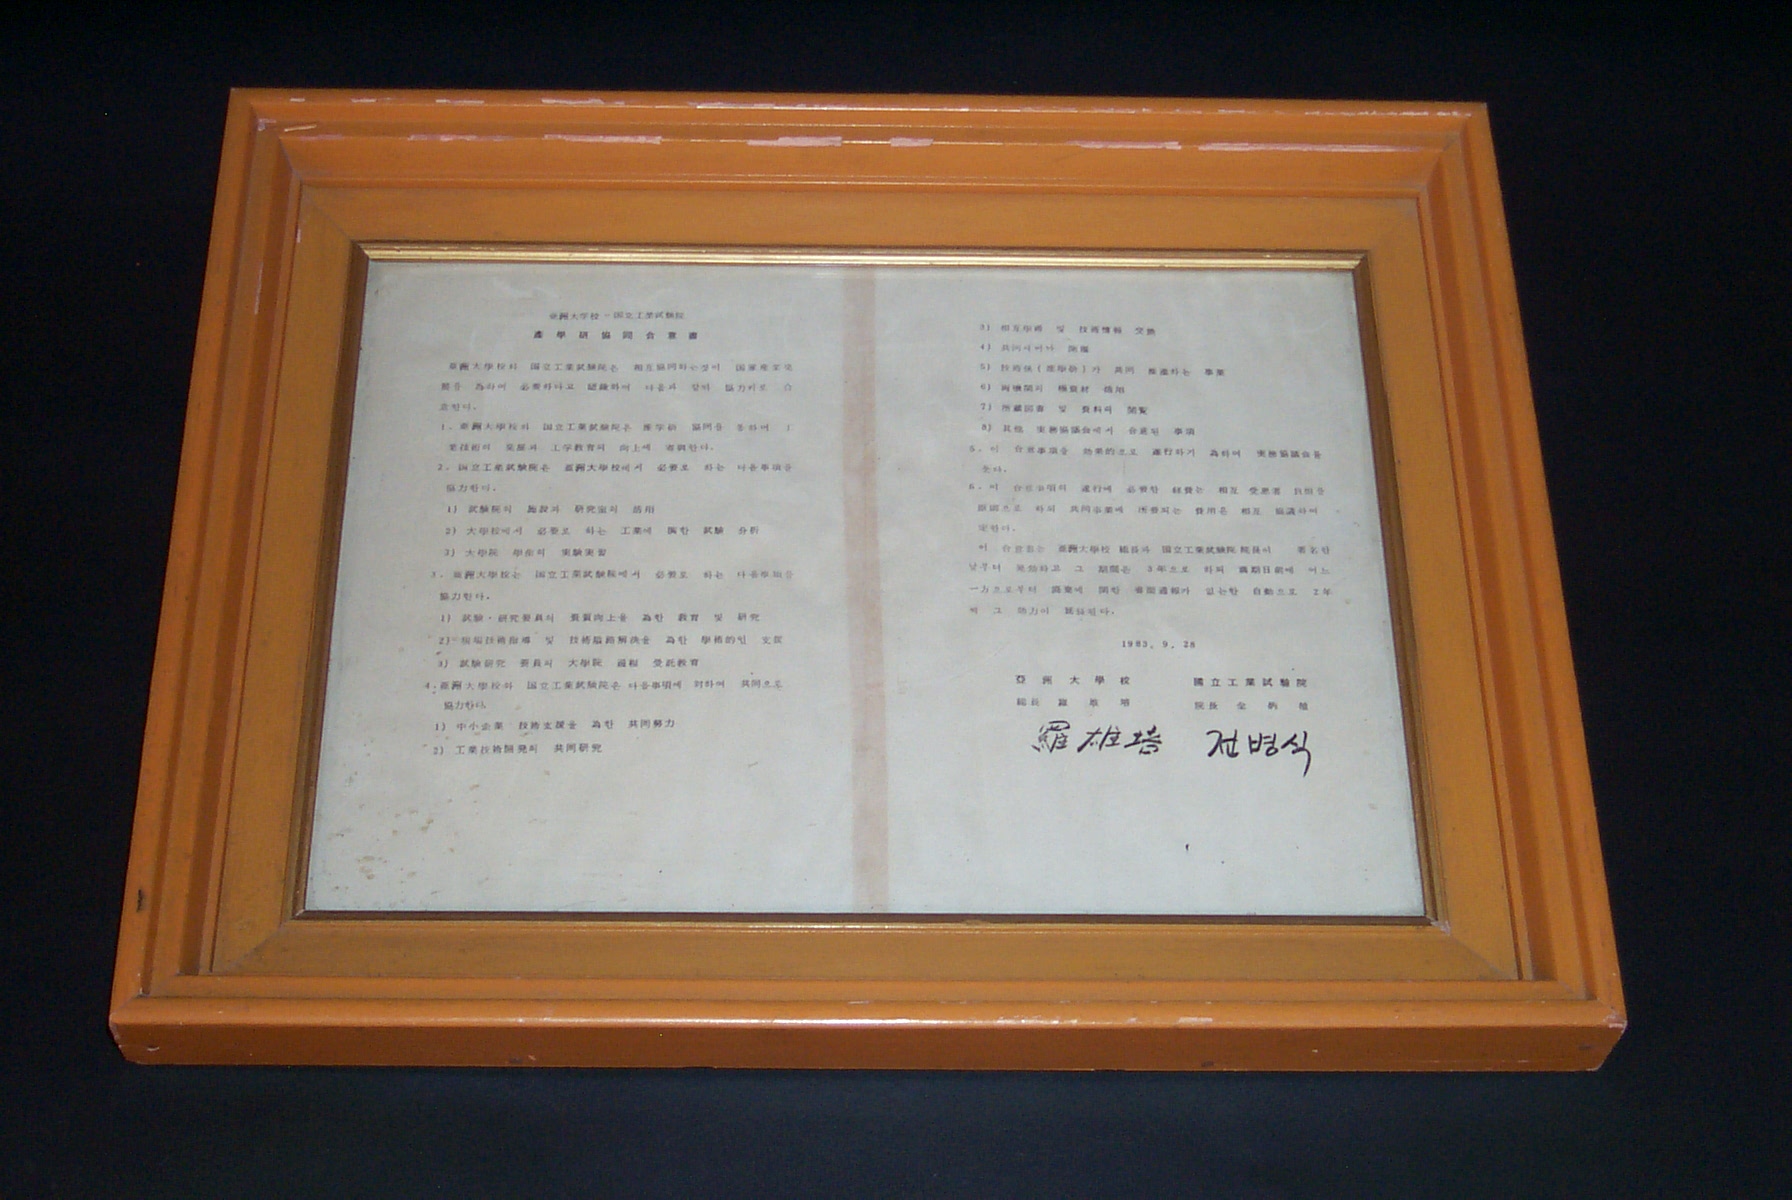 亜洲大学校 - 国立工業試驗院
産學研協同合意書
亜洲大學校와 国立工業試驗院은 相互協同하는것이 国家産業発
展을 為하여 必要하다고 認識하여 다음과 같이 協力키로 合
意한다.
1. 亜洲大學校와 国立工業試驗院은 産学研 協同을 통하여 工
業技術의 発展과 工学教育의 向上에 寄與한다.
2. 国立工業試驗院은 亜洲大學校에서 必要로 하는 다음事項을
協力한다.
1) 試驗院의 施設과 研究室의 活用
2) 大學校에서 必要로 하는 工業에 関한 試驗 分析
3) 大學院 學生의 実驗実習
3. 亜洲大學校는 国立工業試驗院에서 必要로 하는 다음事項을
協力한다.
1) 試驗·研究要員의 資質向上을 為한 教育 및 研究
2) 現場技術指導 및 技術隘路解決을 為한 學術的인 支援
3) 試驗研究 要員의 大學院 過程 受託教育
4. 亜洲大學校와 国立工業試驗院은 다음事項에 対하여 共同으로
協力한다.
1) 中小企業 技術支援을 為한 共同努力
2) 工業技術開発의 共同研究
3) 相互學術 및 技術情報 交換
4) 共同세미나 開催
5) 技術係(産學研)가 共同 推進하는 事業
6) 両機関의 機資材 活用
7) 所蔵図書 및 資料의 閲覧
8) 其他 実務協議会에서 合意된 事項
5. 이 合意事項을 効果的으로 遂行하기 為하여 実務協議会를
둔다.
6. 이 合意事項의 遂行에 必要한 経費는 相互 受恵者 負担을
原則으로 하되 共同事業에 所要되는 費用은 相互 協議하여
定한다.
이 合意書는 亜洲大學校 総長과 国立工業試驗院院長이 署名한
날부터 発効하고 그 期間은 3年으로 하되 満期日前에 어느
一方으로부터 廃棄에 関한 書面通報가 없는한 自動으로 2年
씩 그 効力이 延長된다.
1983. 9. 28
亞洲大學校 國立工業試驗院
総長 羅 院長
羅雄培 전병식